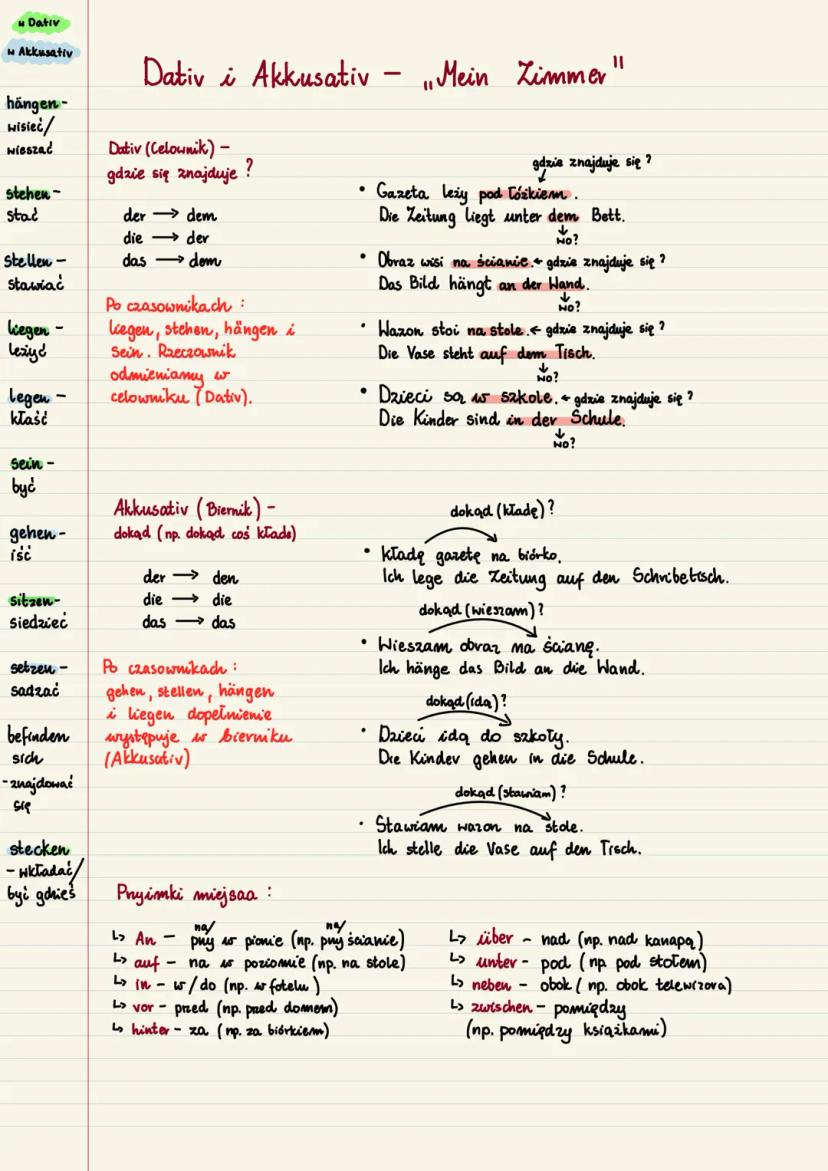 w Dativ
w Akkusativ
hängen -
wisieć/
wieszać
stehen -
stać
stellen -
stawiać
liegen -
leżyć
legen -
kłaść
sein -
być
gehen -
iść
sitzen -
siedzieć
setzen -
sadzać
befinden
sich
- znajdować
się
stecken
- wkładać/
być gdzieś
Dativ i Akkusativ - „Mein Zimmer"
Dativ (Celownik) -
gdzie się znajduje ?
der → dem
die → der
das → dem
Po czasownikach :
liegen, stehen, hängen i
sein. Rzeczownik
odmieniamy w
celowniku (Dativ).
gdzie znajduje się ?
• Gazeta leży pod łóżkiem .
Die Zeitung liegt unter dem Bett.
wo?
• Obraz wisi na ścianie. ← gdzie znajduje się ?
Das Bild hängt an der Wand.
wo?
• Wazon stoi na stole. ← gdzie znajduje się ?
Die Vase steht auf dem Tisch.
wo?
• Dzieci są w szkole. ← gdzie znajduje się ?
Die Kinder sind in der Schule.
wo?
Akkusativ (Biernik) -
dokąd (np. dokąd coś kładę)
der → den
die → die
das → das
Po czasownikach :
gehen, stellen, hängen
i liegen dopełnienie
występuje w bierniku
(Akkusativ)
dokąd (kładę)?
• Kładę gazetę na biórko.
Ich lege die Zeitung auf den Schribetisch.
dokąd (wieszam) ?
• Wieszam obraz na ścianę.
Ich hänge das Bild an die Wand.
dokąd (idą) ?
• Dzieci idą do szkoły.
Die Kinder gehen in die Schule.
dokąd (stawiam) ?
• Stawiam wazon na stole.
Ich stelle die Vase auf den Tisch.
Przyimki miejsca :
na/ na/
↳ An - przy w pionie (np. przy ścianie)
↳ auf - na w poziomie (np. na stole)
↳ in - w/do (np. w fotelu)
↳ vor - przed (np. przed domem)
↳ hinter - za (np. za biórkiem)
↳ über - nad (np. nad kanapą)
↳ unter - pod (np pod stołem)
↳ neben - obok (np. obok telewizora)
↳ zwischen - pomiędzy
(np. pomiędzy książkami)